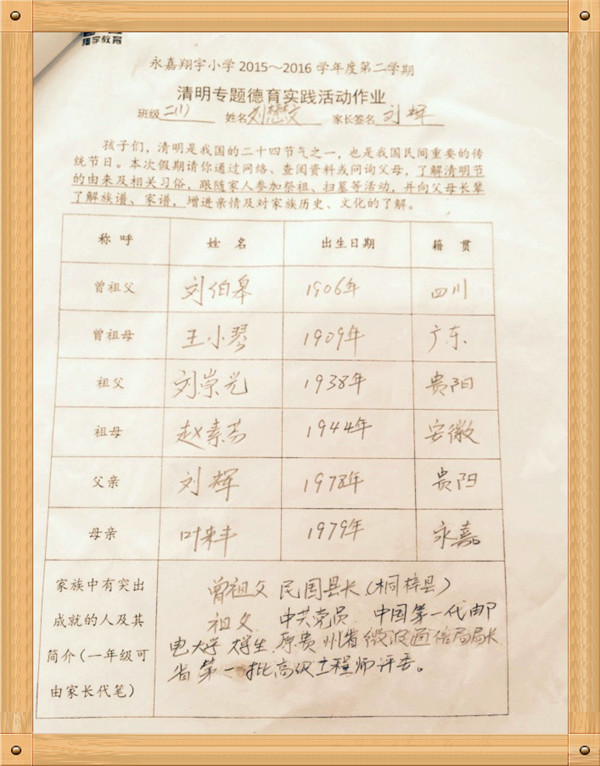 翔宇教育
永嘉翔宇小学 2015～2016 学年度第二学期
清明专题德育实践活动作业
班级 二(1) 姓名 刘懋文 家长签名 刘辉
孩子们，清明是我国的二十四节气之一，也是我国民间重要的传
统节日。本次假期请你通过网络、查阅资料或问询父母，了解清明节
的由来及相关习俗，跟随家人参加祭祖、扫墓等活动，并向父母长辈
了解族谱、家谱，增进亲情及对家族历史、文化的了解。
称呼 姓名 出生日期 籍贯
曾祖父 刘伯皋 1906年 四川
曾祖母 王小琴 1909年 广东
祖父 刘崇光 1938年 贵阳
祖母 赵素芬 1944年 安徽
父亲 刘辉 1978年 贵阳
母亲 叶来丰 1979年 永嘉
家族中有突出
成就的人及其
简介（一年级可
由家长代笔）
曾祖父 民国县长（桐梓县）
祖父 中共党员 中国第一代邮
电大学 大学生 原贵州省微波通信局局长
省第一批高级工程师评委。